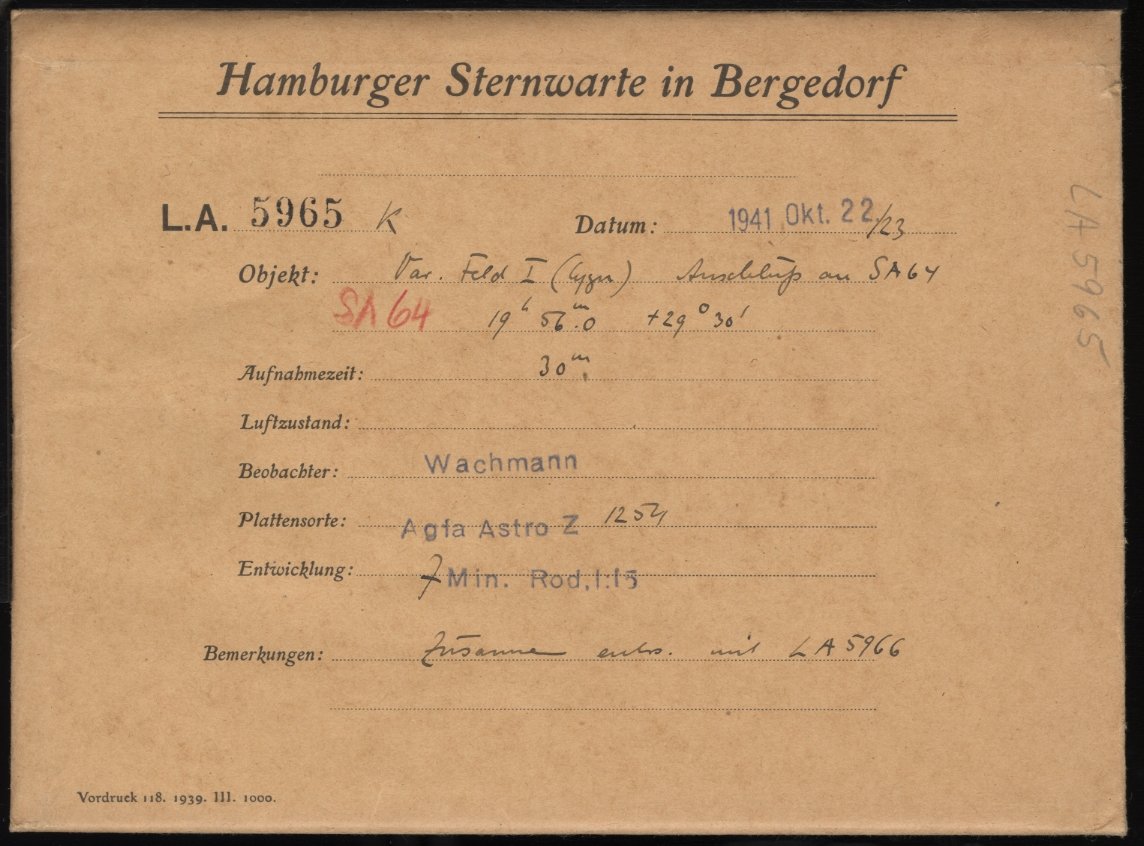 Hamburger Sternwarte in Bergedorf
L.A. 5965 K Datum: 1941 Okt. 22./23
Objekt: Var. Feld I (Cygni) Anschluß an SA 64
SA 64 19h 56m.0 +29° 30'
Aufnahmezeit: 30m.
Luftzustand:
Beobachter: Wachmann
Plattensorte: Agfa Astro Z 1254
Entwicklung: 7 Min. Rod. 1:15
Bemerkungen: Zusammen entw. mit LA 5966
Vordruck 118. 1939. III. 1000.
LA 5965